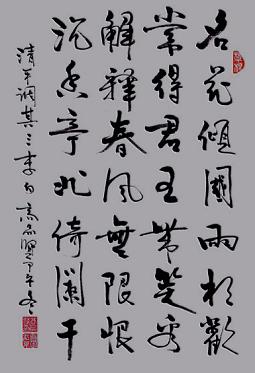 名花傾國兩相歡
常得君王帶笑看
解釋春風無限恨
沉香亭北倚闌干
清平調其三李白甲午冬